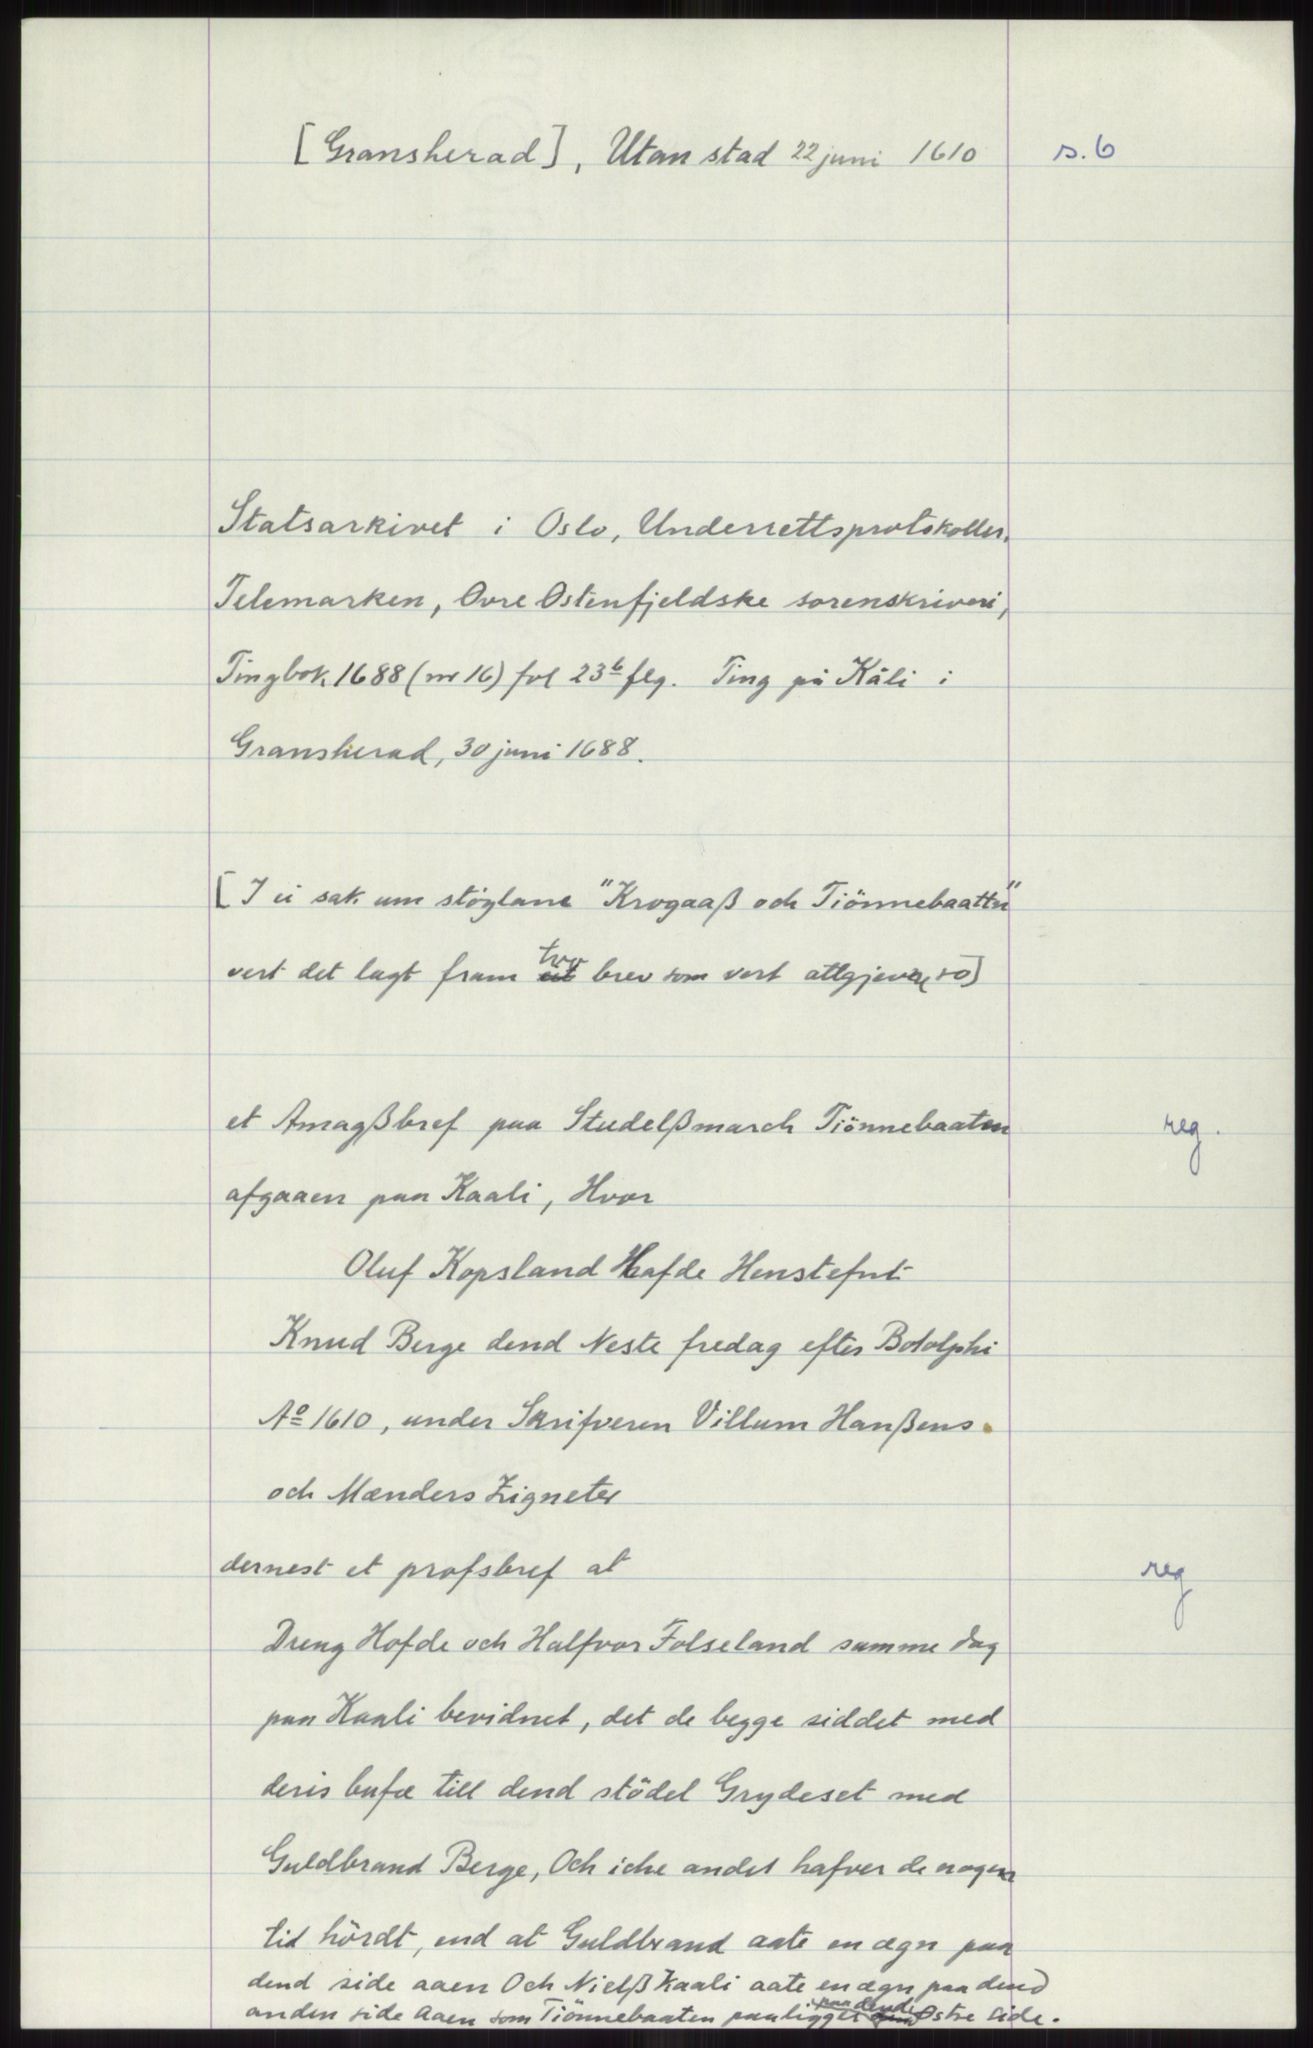 [Gransherad], Utan stad 22 juni 1610 s. 6
Statsarkivet i Oslo, Underrettsprotokoller.
Telemarken, Øvre Østenfjeldske sorenskriveri,
Tingbok 1688 (nr 16) fol 23b flg. Ting på Kåli i
Gransherad, 30 juni 1688.
[I ei sak um stöylane "Krogaaß och Tiönnebaatten"
vert det lagt fram tvo brev som vert attgjevne so]
et Amagßbref paa Studelßmarch Tiönnebaaten reg.
afgaaen paa Kaali, Hvor
Oluf Kopsland Hafde Henstefnt
Knud Berge dend Neste fredag efter Botolphi
Aº 1610, under Skrifveren Villum Hanßens
och Mænders Zigneter
dernest et profsbref at reg
Dreng Hofde och Halfvor Folseland samme dag
paa Kaali bevidnet, det de begge siddet med
deris bufæ till dend stödel Grydeset med
Guldbrand Berge, Och iche andet hafver de nogen
tid hördt, end at Guldbrand aate en ægn paa
dend side aaen Och Nielß Kaali aate en ægn paa dend
anden side Aaen som Tiönnebaaten paaligger paa dend Østre side.